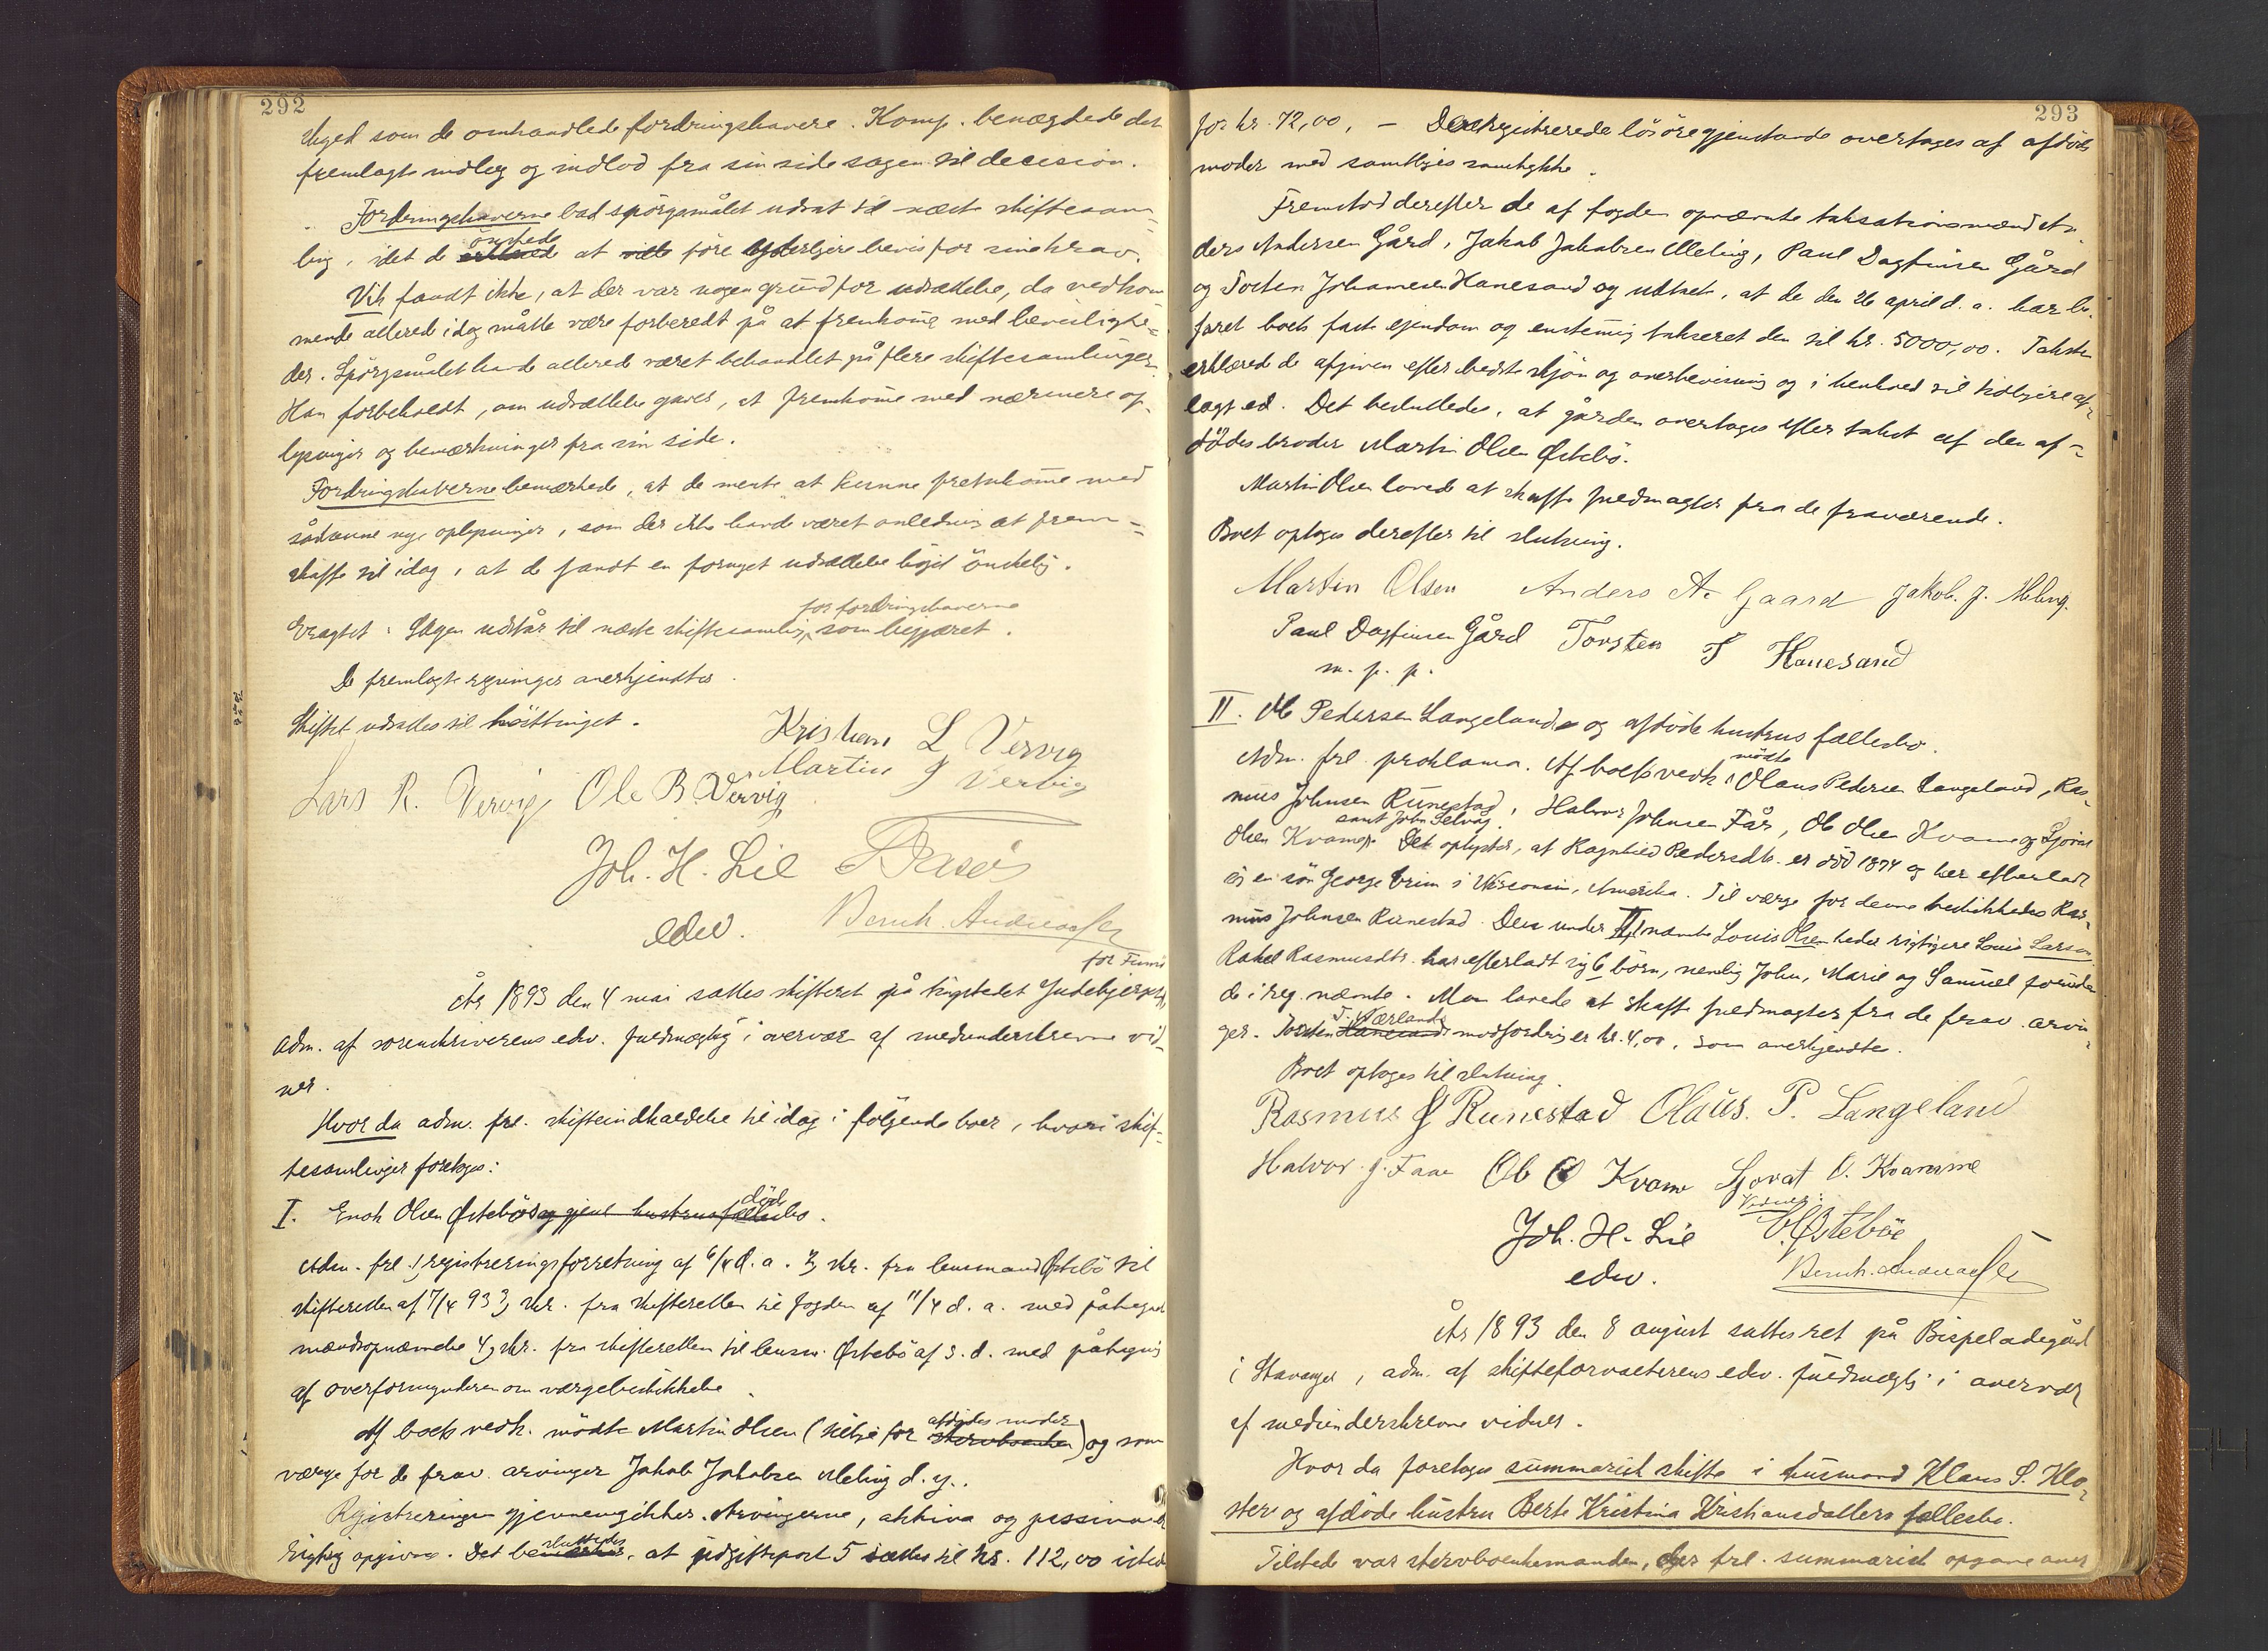 292
skyed som de omhandlede fordringshavere. Komp. benægtede det
fremlagte indleg og indlod fra sin side sagen til decision.
Fordringshaverne bad spörgsmålet udsat til næste skiftesam=
ling, idet de önskede at före yderligere bevis for sine krav.
Vik fandt ikke, at der var nogen grund for udsættelse, da vedkom
mende allerede idag måtte være forberedt på at fremkomme med bevislighe=
der. Spörgsmålet havde allerede været behandlet på flere skiftesamlinger.
Han forbeholdt, om udsættelse gaves, at fremkomme med nærmere op-
lysninger og bemærkninger fra sin side.
Fordringshaverne bemærkede, at de mente at kunne fremkomme med
sådanne nye oplysninger, som der ikke havde været anledning at frem=
skaffe til idag, at de fandt en fornyet udsættelse höist önskelig.
for fordringshaverne
Eragtet: Sagen udstår til næste skiftesamling, som begjæret.
De fremlagte regninger anerkjendtes.
Skiftet udsattes til hösttinget.
Kristian L Vervig
Martin J Vervig
Lars R. Vervig Ole B. Vervig
Joh. H. Lie
edv. Bernh. Andreassen
for Finnö
År 1893 den 4 mai sattes skifteret på tingstedet Judebjerget,
adm. af sorenskriverens edv. fuldmægtig i overvær af medunderskrevne vid-
ner.
Hvor da adm. frl. skifteindkaldelse til idag i fölgende boer, hvori skif-
tesamlinger foretoges:
I. Enok Olsen Østebös dödsbo.
Adm. frl. 1, registreringsforretning af 6/4 d. a. 2, skr. fra lensmand Östebö til
skifteretten af 7/4 93 3, skr. fra skifteretten til fogden af 11/4 d. a. med påtegnet
mændsopnævnelse 4, skr. fra skifteretten til lensm. Östebö af s. d. med påtegnig
af overformynderen om værgebeskikkelse.
Af boets vedk. mödte Martin Olsen (tillige for afdödes moder) og som
værge for de frav. arvinger Jakob Jakobsen Meling d. y..
Registreringen gjennemgikkes. Arvingerne, aktiva og passiva er
rigtig opgivne. Det besluttedes, at udgiftspost 5 sættes til kr. 112,00 istedet
293
for kr. 72,00. — De registrerede lösöregjenstande overtages af afdödes
moder med samtliges samtykke.
Fremstod derefter de af fogden opnævnte taksationsmænd An
ders Andersen Gård, Jakob Jakobsen Meling, Paul Dagfinsen Gård
og Tosten Johannesen Hanesand og udsat, at de den 26 april d. a. har be-
faret boets faste ejendom og enstemig takseret den til kr. 5000,00. Taksten
erklærede de afgiven efter bedste skjön og overbevisning og i henhold til tidligere af-
lagt ed. Det besluttedes, at gården overtages efter takst af den af-
dödes broder Martin Olsen Østebö.
Martin Olsen lovede at skaffe fuldmagter fra de fraværende.
Boet optoges derefter til slutning.
Martin Olsen Anders A. Gaard Jakob. J. Meling.
Paul Dagfinsen Gård Torsten J Hanesand
m. f. p.
II. Ole Pedersen Langeland og afdöde hustrus fællesbo.
Adm. frl. proklama. Af boets vedk. mödte Olaus Pedersen Langeland, Ras-
mus Johnsen Runestad, Halvor Johnsen Får, Ole Olsen Kvame og Sjovat
samt John Selvåg.
Olsen Kvame. Det oplystes, at Ragnhild Pedersdtr. er död 1874 og har efterladt
sig en sön George Grim i Wisconsin, Amerika. Til værge for denne beskikkedes Ras-
mus Johnsen Runestad. Den under nævnte Louis Olsen heder rigtigere Louis Larson
Rakel Rasmusdtr. har efterladt sig 6 börn, nemlig John, Marie og Samuel foruden
de i reg. nævnte. Man lovede at skaffe fuldmagter fra de frav. arvin-
ger. Torsten T. Værlands modfordring er kr. 4,00, som anerkjendtes.
Boet optoges til slutning.
Rasmus J Runestad Olaus. P. Langeland
Halvor. J. Faae Ole O Kvame Sjovat O. Kvamme
Vidner:
Joh. H. Lie O. Østeböe
edv. Bernh. Andreassen
År 1893 den 8 august sattes ret på Bispeladegård
i Stavanger, adm. af skifteforvalterens edv. fuldmægtig i overvær
af medunderskrevne vidner.
Hvor da foretoges summarisk skifte i husmand Klaus S. Klo-
ster og afdöde hustru Berte Kristina Kristiansdatters fællesbo.
Tilstede var stervboenkemanden, der frl. summarisk opgave over